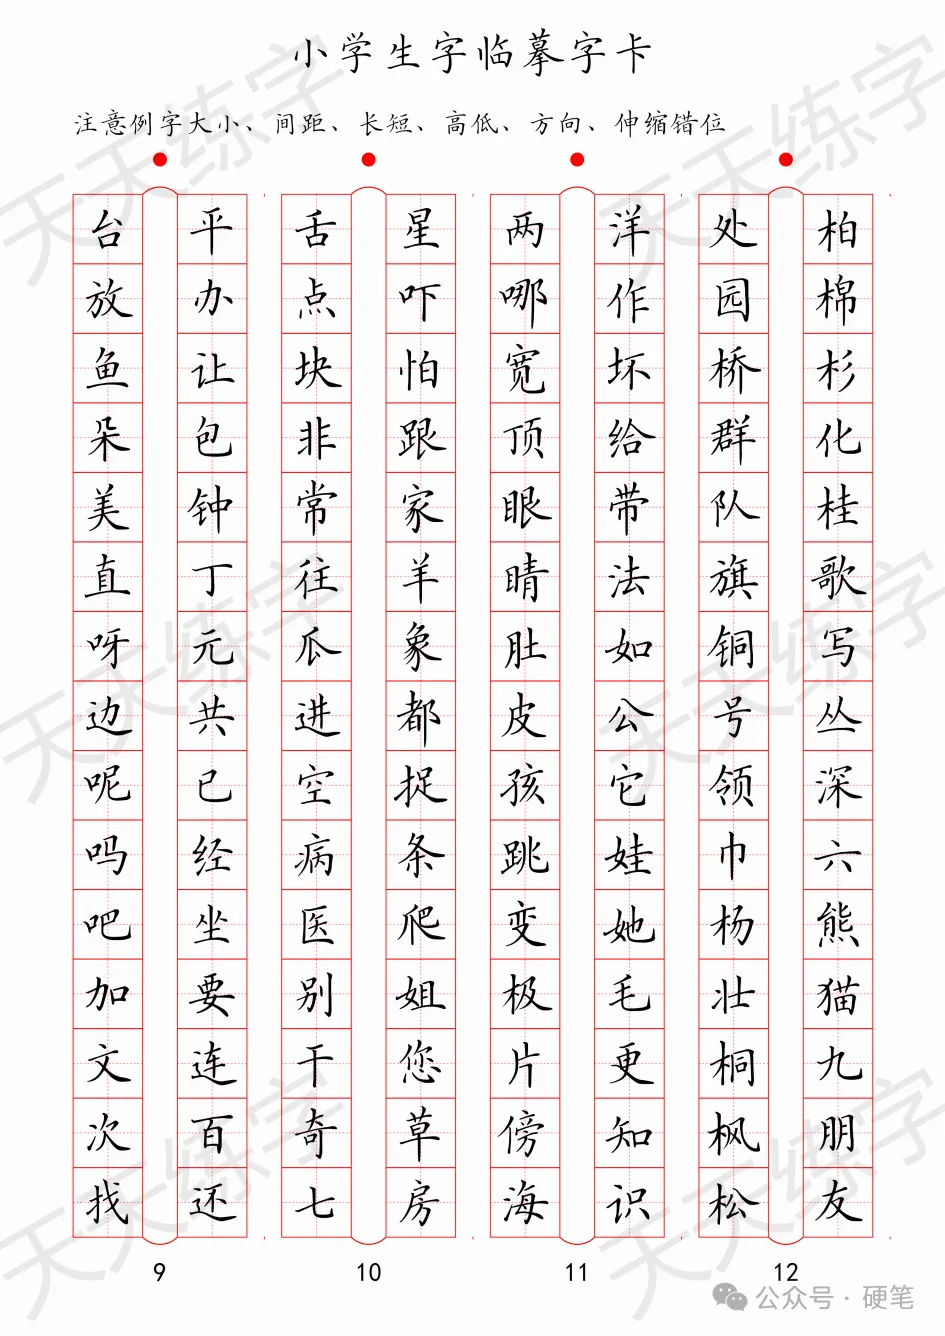 小学生字临摹字卡
注意例字大小、间距、长短、高低、方向、伸缩错位
台 平 舌 星 两 洋 处 柏
放 办 点 吓 哪 作 园 棉
鱼 让 块 怕 宽 坏 桥 杉
朵 包 非 跟 顶 给 群 化
美 钟 常 家 眼 带 队 桂
直 丁 往 羊 睛 法 旗 歌
呀 元 瓜 象 肚 如 铜 写
边 共 进 都 皮 公 号 丛
呢 已 空 捉 孩 它 领 深
吗 经 病 条 跳 娃 巾 六
吧 坐 医 爬 变 她 杨 熊
加 要 别 姐 极 毛 壮 猫
文 连 干 您 片 更 桐 九
次 百 奇 草 傍 知 枫 朋
找 还 七 房 海 识 松 友
9 10 11 12
公众号·硬笔
天天练字
天天练字
天天练字
天天练字
天天练字
天天练字